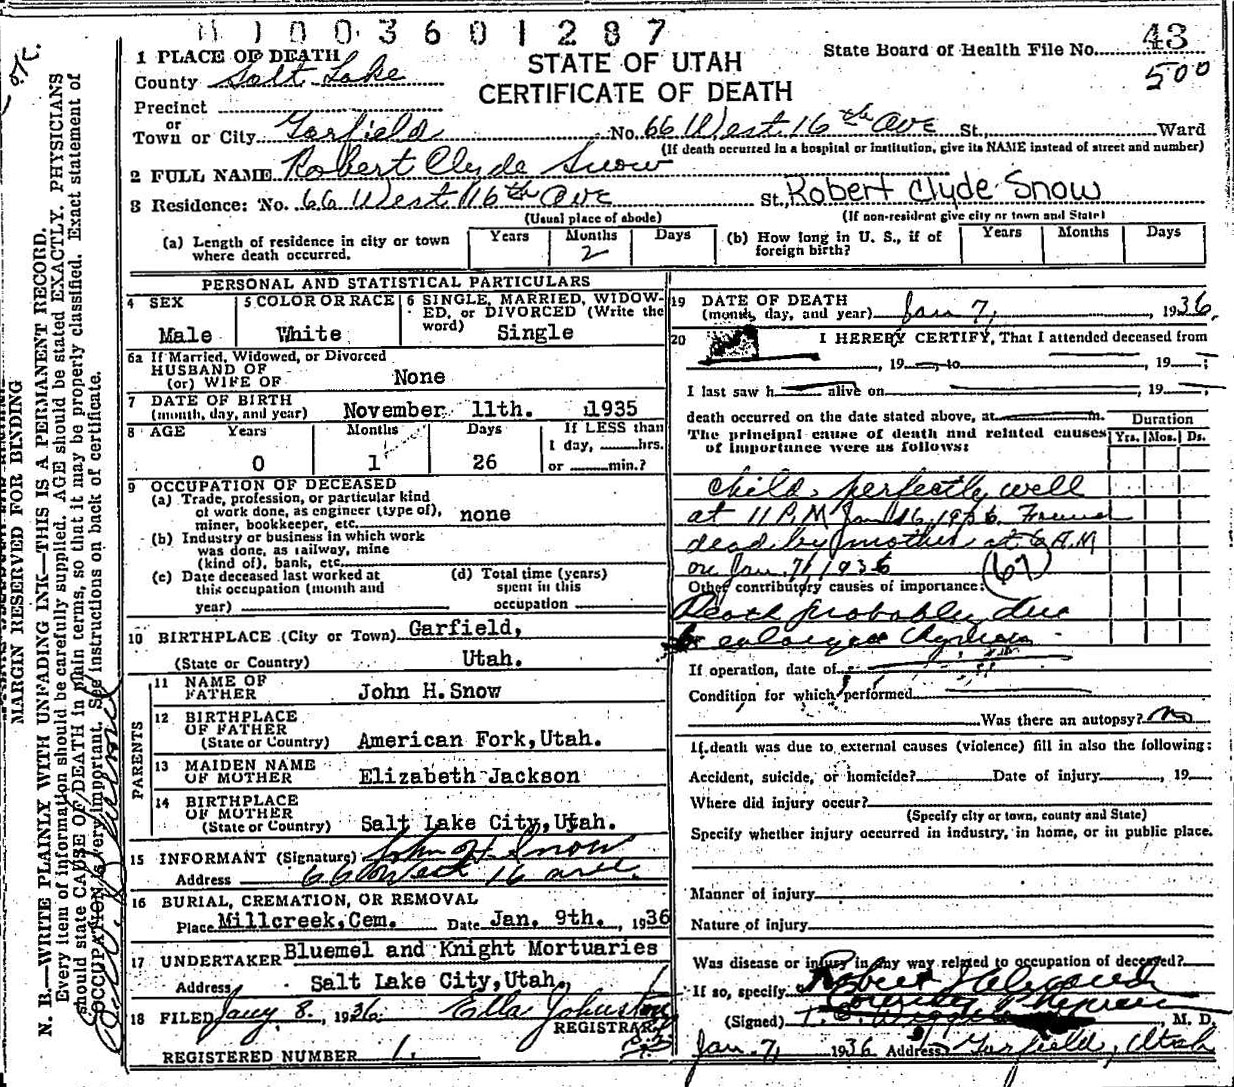 11003601287
State Board of Health File No. 43
500
STATE OF UTAH
CERTIFICATE OF DEATH
1 PLACE OF DEATH
County Salt Lake
Precinct
or
Town or City Garfield No. 66 West 16th Ave St., Ward
(If death occurred in a hospital or institution, give its NAME instead of street and number)
2 FULL NAME Robert Clyde Snow
3 Residence: No. 66 West 16th Ave St., Robert Clyde Snow
(Usual place of abode) (If non-resident give city or town and State)
(a) Length of residence in city or town where death occurred. Years Months 2 Days
(b) How long in U. S., if of foreign birth? Years Months Days
PERSONAL AND STATISTICAL PARTICULARS
4 SEX
Male
5 COLOR OR RACE
White
6 SINGLE, MARRIED, WIDOWED, or DIVORCED (Write the word)
Single
6a If Married, Widowed, or Divorced
HUSBAND OF
(or) WIFE OF None
7 DATE OF BIRTH
(month, day, and year) November 11th. 1935
8 AGE Years Months Days If LESS than
1 day, hrs.
0 1 26 or min.?
9 OCCUPATION OF DECEASED
(a) Trade, profession, or particular kind
of work done, as engineer (type of),
miner, bookkeeper, etc. none
(b) Industry or business in which work
was done, as railway, mine
(kind of), bank, etc.
(c) Date deceased last worked at
this occupation (month and
year)
(d) Total time (years)
spent in this
occupation
10 BIRTHPLACE (City or Town) Garfield,
(State or Country) Utah.
PARENTS
11 NAME OF
FATHER John H. Snow
12 BIRTHPLACE
OF FATHER
(State or Country) American Fork, Utah.
13 MAIDEN NAME
OF MOTHER Elizabeth Jackson
14 BIRTHPLACE
OF MOTHER
(State or Country) Salt Lake City, Utah.
15 INFORMANT (Signature) John H. Snow
Address 66 West 16 ave.
16 BURIAL, CREMATION, OR REMOVAL
Place Millcreek, Cem. Date Jan. 9th. 1936
17 UNDERTAKER Bluemel and Knight Mortuaries
Address Salt Lake City, Utah,
18 FILED Jany. 8, 1936. Ella Johnston
REGISTRAR
REGISTERED NUMBER 1.
19 DATE OF DEATH
(month, day, and year) Jan 7, 1936.
20 I HEREBY CERTIFY, That I attended deceased from
, 19 , to , 19 ;
I last saw h alive on , 19 ;
death occurred on the date stated above, at m.
The principal cause of death and related causes
of importance were as follows:
Duration
Yrs. Mos. Ds.
Child perfectly well
at 11 P.M Jan 6, 1936. Found
dead by mother at 6 A.M
on Jan 7, 1936
Other contributory causes of importance:
Death probably due
to enlarged thymus
If operation, date of
Condition for which performed
Was there an autopsy? no
If death was due to external causes (violence) fill in also the following:
Accident, suicide, or homicide? Date of injury , 19
Where did injury occur?
(Specify city or town, county and State)
Specify whether injury occurred in industry, in home, or in public place.
Manner of injury
Nature of injury
Was disease or injury in any way related to occupation of deceased?
If so, specify
(Signed) , M. D.
Jan. 7, 1936 Address Garfield, Utah
MARGIN RESERVED FOR BINDING
N. B.—WRITE PLAINLY WITH UNFADING INK—THIS IS A PERMANENT RECORD.
Every item of information should be carefully supplied. AGE should be stated EXACTLY. PHYSICIANS
should state CAUSE OF DEATH in plain terms, so that it may be properly classified. Exact statement of
OCCUPATION is very important. See instructions on back of certificate.